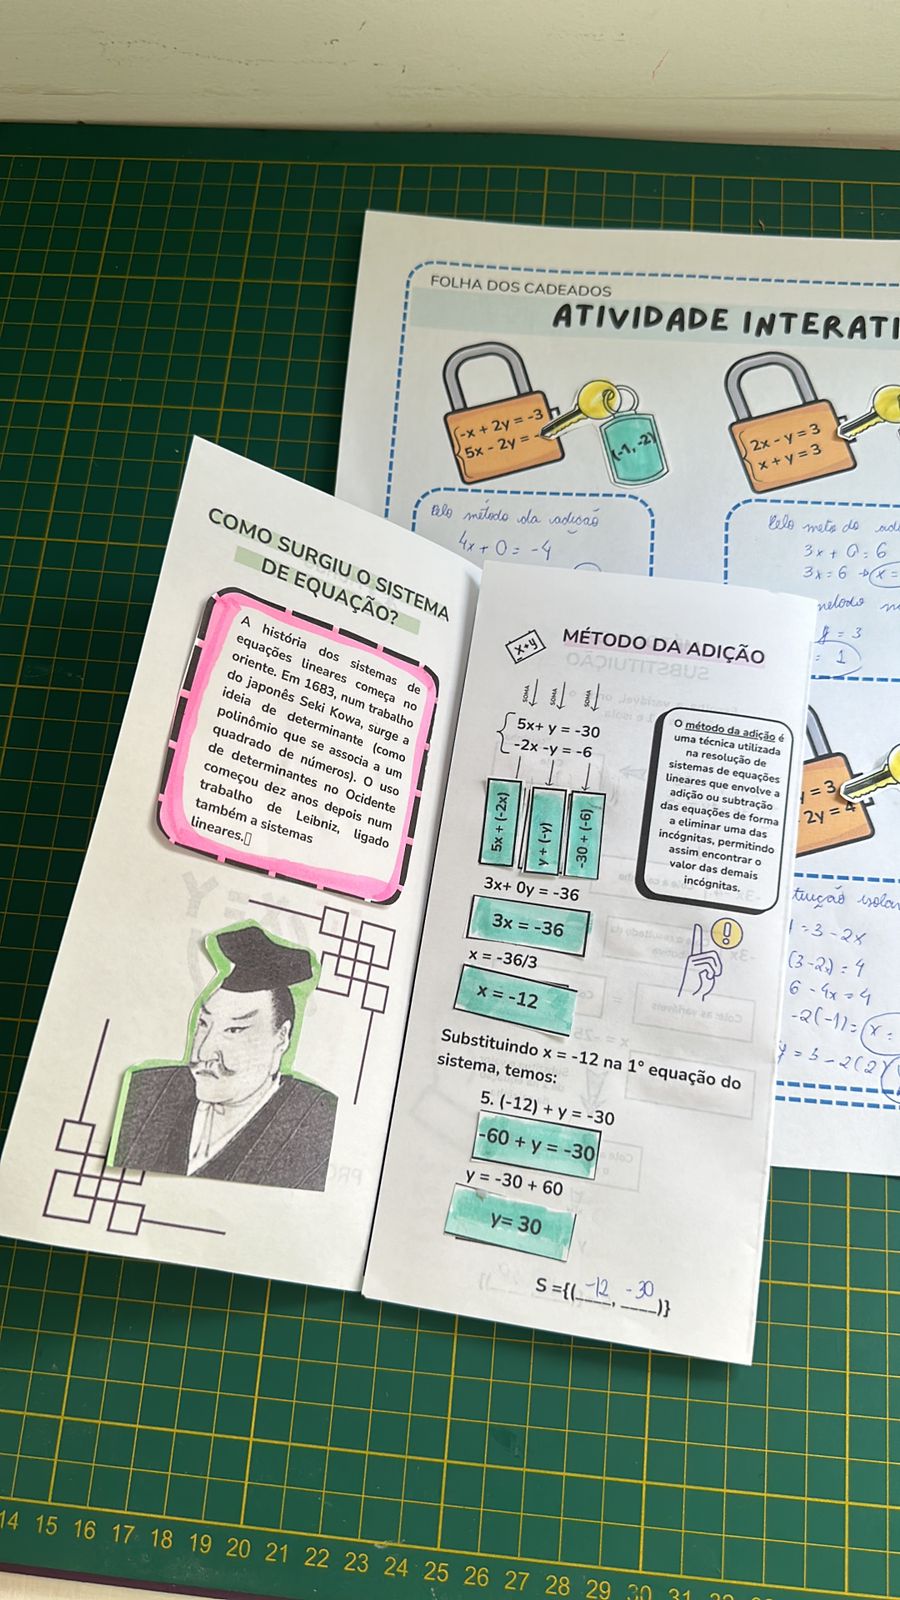 FOLHA DOS CADEADOS
ATIVIDADE INTERATI
-x + 2y = -3
5x - 2y = -
(-1, -2)
2x - y = 3
x + y = 3
Pelo método da adição
4x + 0 = -4
Pelo
3x + 0 = 6
3x = 6 → x =
= 3
= 1
y = 3
2y = 4
= 3 - 2x
(3-2x) = 4
6 - 4x = 4
-2(-1) = x =
y = 3 - 2(2
COMO SURGIU O SISTEMA
DE EQUAÇÃO?
A história dos sistemas de
equações lineares começa no
oriente. Em 1683, num trabalho
do japonês Seki Kowa, surge a
ideia de determinante (como
polinômio que se associa a um
quadrado de números). O uso
de determinantes no Ocidente
começou dez anos depois num
trabalho de Leibniz, ligado
também a sistemas
lineares.
x+y
MÉTODO DA ADIÇÃO
SOMA SOMA SOMA
5x+ y = -30
-2x -y = -6
5x + (-2x)
y + (-y)
-30 + (-6)
3x+ 0y = -36
3x = -36
x = -36/3
x = -12
O método da adição é
uma técnica utilizada
na resolução de
sistemas de equações
lineares que envolve a
adição ou subtração
das equações de forma
a eliminar uma das
incógnitas, permitindo
assim encontrar o
valor das demais
incógnitas.
Substituindo x = -12 na 1° equação do
sistema, temos:
5. (-12) + y = -30
-60 + y = -30
y = -30 + 60
y= 30
S ={(-12, -30)}
14 15 16 17 18 19 20 21 22 23 24 25 26 27 28 29 30 31